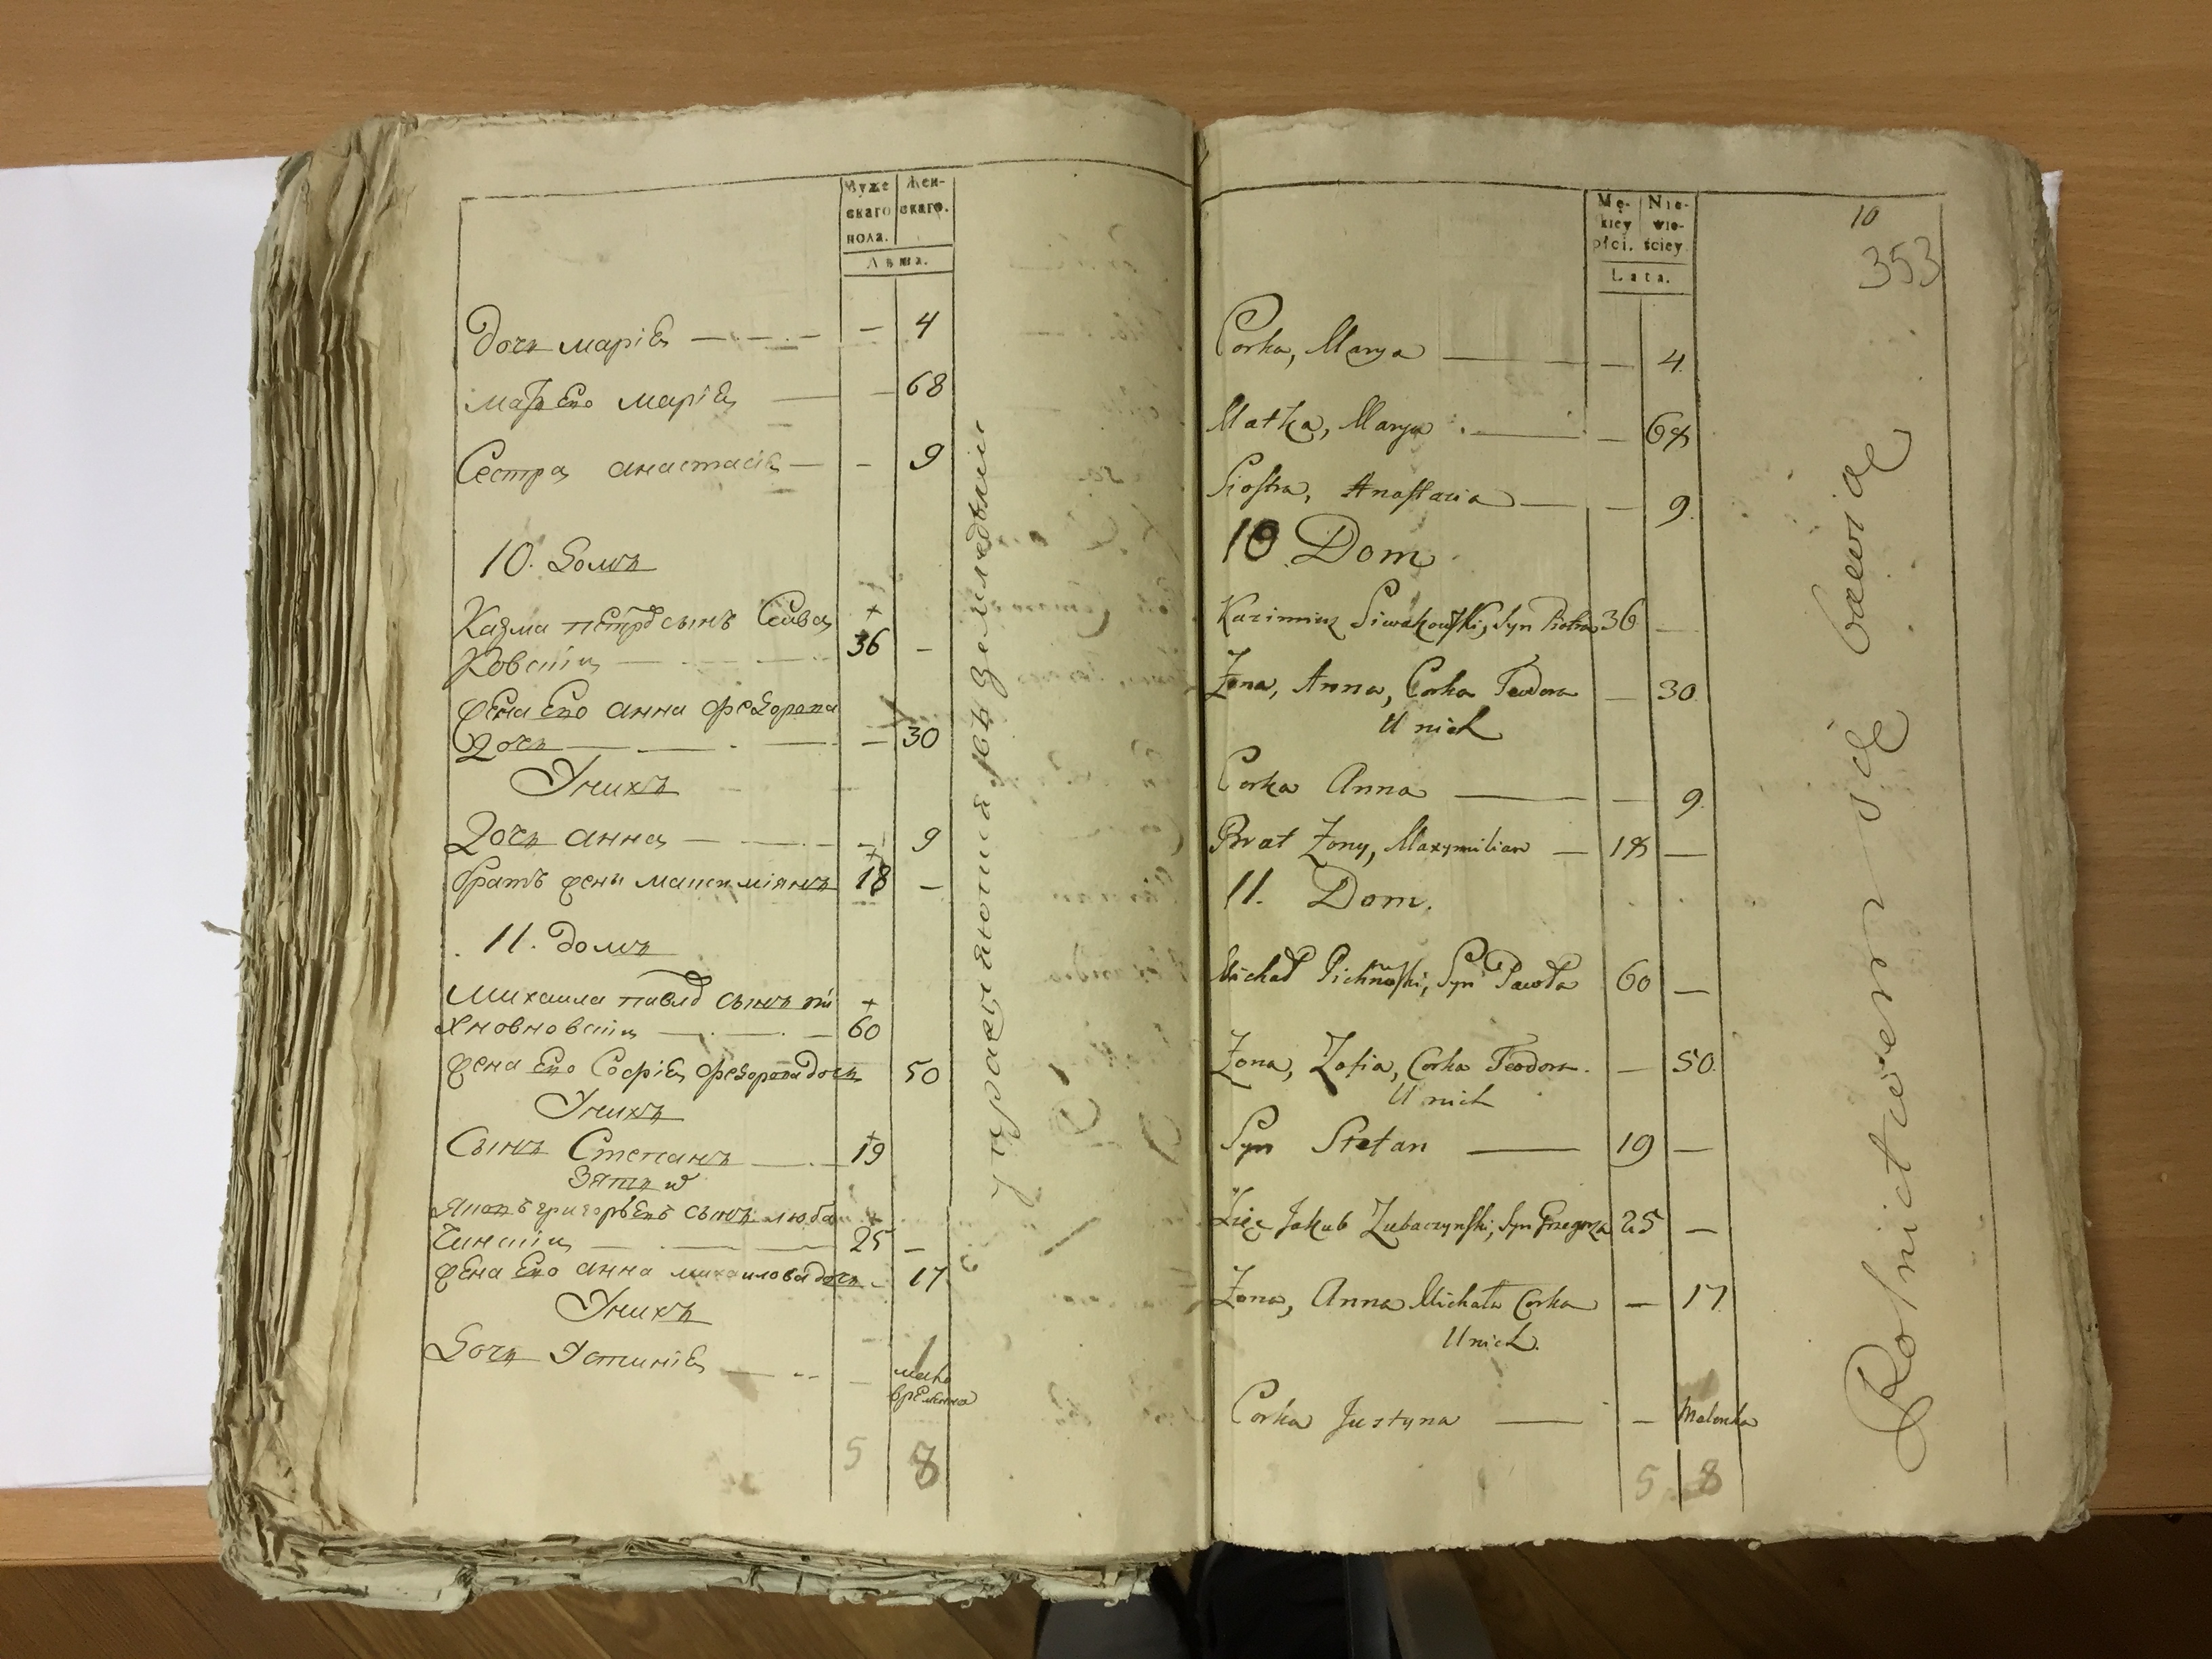 Муже
скаго
пола.
Жен-
скаго.
Лѣта.
Дочь Марія 4
Мать Его Марія 68
Сестра Анастасія 9
10. Домъ
Казма Петровъ сынъ Сива
ковскій 36
Жена Его Анна Федорова
Дочь 30
У нихъ
Дочь Анна 9
братъ жены Максиміянъ 18
11. Домъ
Михайла Павловъ сынъ Пи
хновновскій 60
Жена Его Софія Федорова дочь 50
У нихъ
Сынъ Степанъ 19
Зять и
Якопъ Григорьевъ сынъ Люба
чинскій 25
Жена Его Анна Михайлова дочь 17
У нихъ
Дочь Устинія
5 8
Упражняются въ земледѣліи
Mę-
kiey
płci.
Nie-
wie-
ściey.
Lata.
10
353
Corka, Marya 4.
Matka, Marya 68
Siostra, Anastazia 9.
10 Dom
Kazimierz Siwakowski, Syn Piotra 36
Żona, Anna, Corka Teodora 30.
U nich
Corka Anna 9.
Brat Żony, Maxymilian 18
11. Dom.
Michał Pichnowski, Syn Pawła 60
Żona, Zofia, Corka Teodora 50.
U nich
Syn Stefan 19
Zięć Jakub Lubaczynski, Syn Grzegorza 25
Żona, Anna Michała Corka 17.
U nich.
Corka Justyna Malenka
5 8
Rolnictwem się bawią